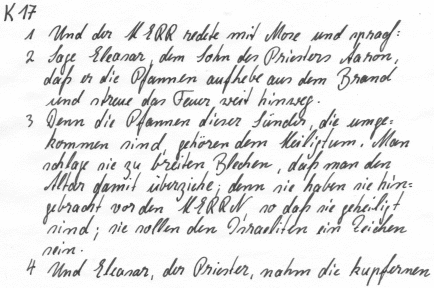 K 17
1 Und der HERR redete mit Mose und sprach:
2 Sage Eleasar, dem Sohn des Priesters Aaron,
daß er die Pfannen aufhebe aus dem Brand
und streue das Feuer weit hinweg.
3 Denn die Pfannen dieser Sünder, die umge-
kommen sind, gehören dem Heiligtum. Man
schlage sie zu breiten Blechen, daß man den
Altar damit überziehe; denn sie haben sie hin-
gebracht vor den HERRN so daß sie geheiligt
sind; sie sollen den Israeliten ein Zeichen
sein.
4 Und Eleasar, der Priester, nahm die kupfernen